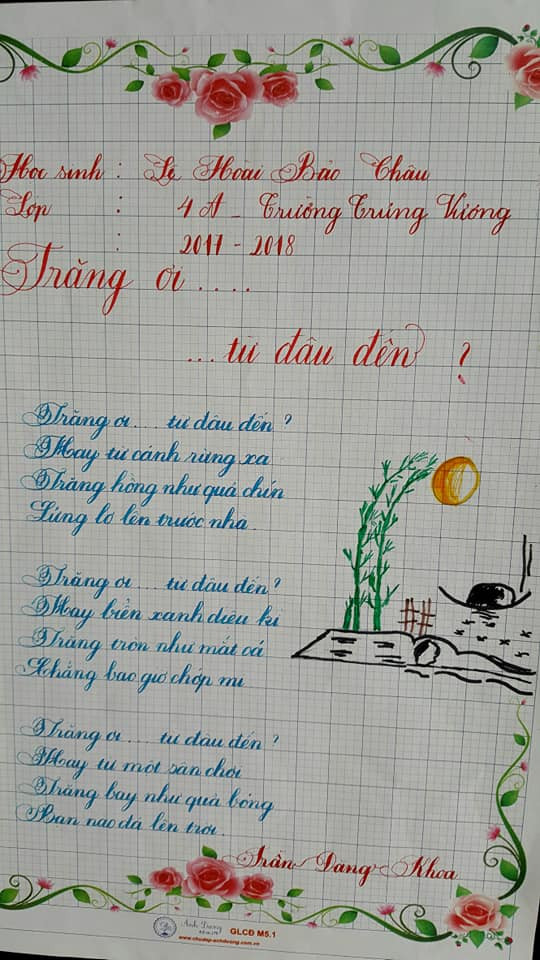 Học sinh : Lê Hoài Bảo Châu
Lớp : 4A - Trường Trưng Vương
: 2017 - 2018
Trăng ơi ....
... từ đâu đến ?
Trăng ơi .... từ đâu đến ?
Hay từ cánh rừng xa
Trăng hồng như quả chín
Lửng lơ lên trước nhà.
Trăng ơi .... từ đâu đến ?
Hay biển xanh diệu kì
Trăng tròn như mắt cá
Chẳng bao giờ chớp mi
Trăng ơi .... từ đâu đến ?
Hay từ một sân chơi
Trăng bay như quả bóng
Bạn nào đá lên trời.
Trần Đăng Khoa
Ánh Dương
GLCĐ M5.1
www.chudep-anhduong.com.vn